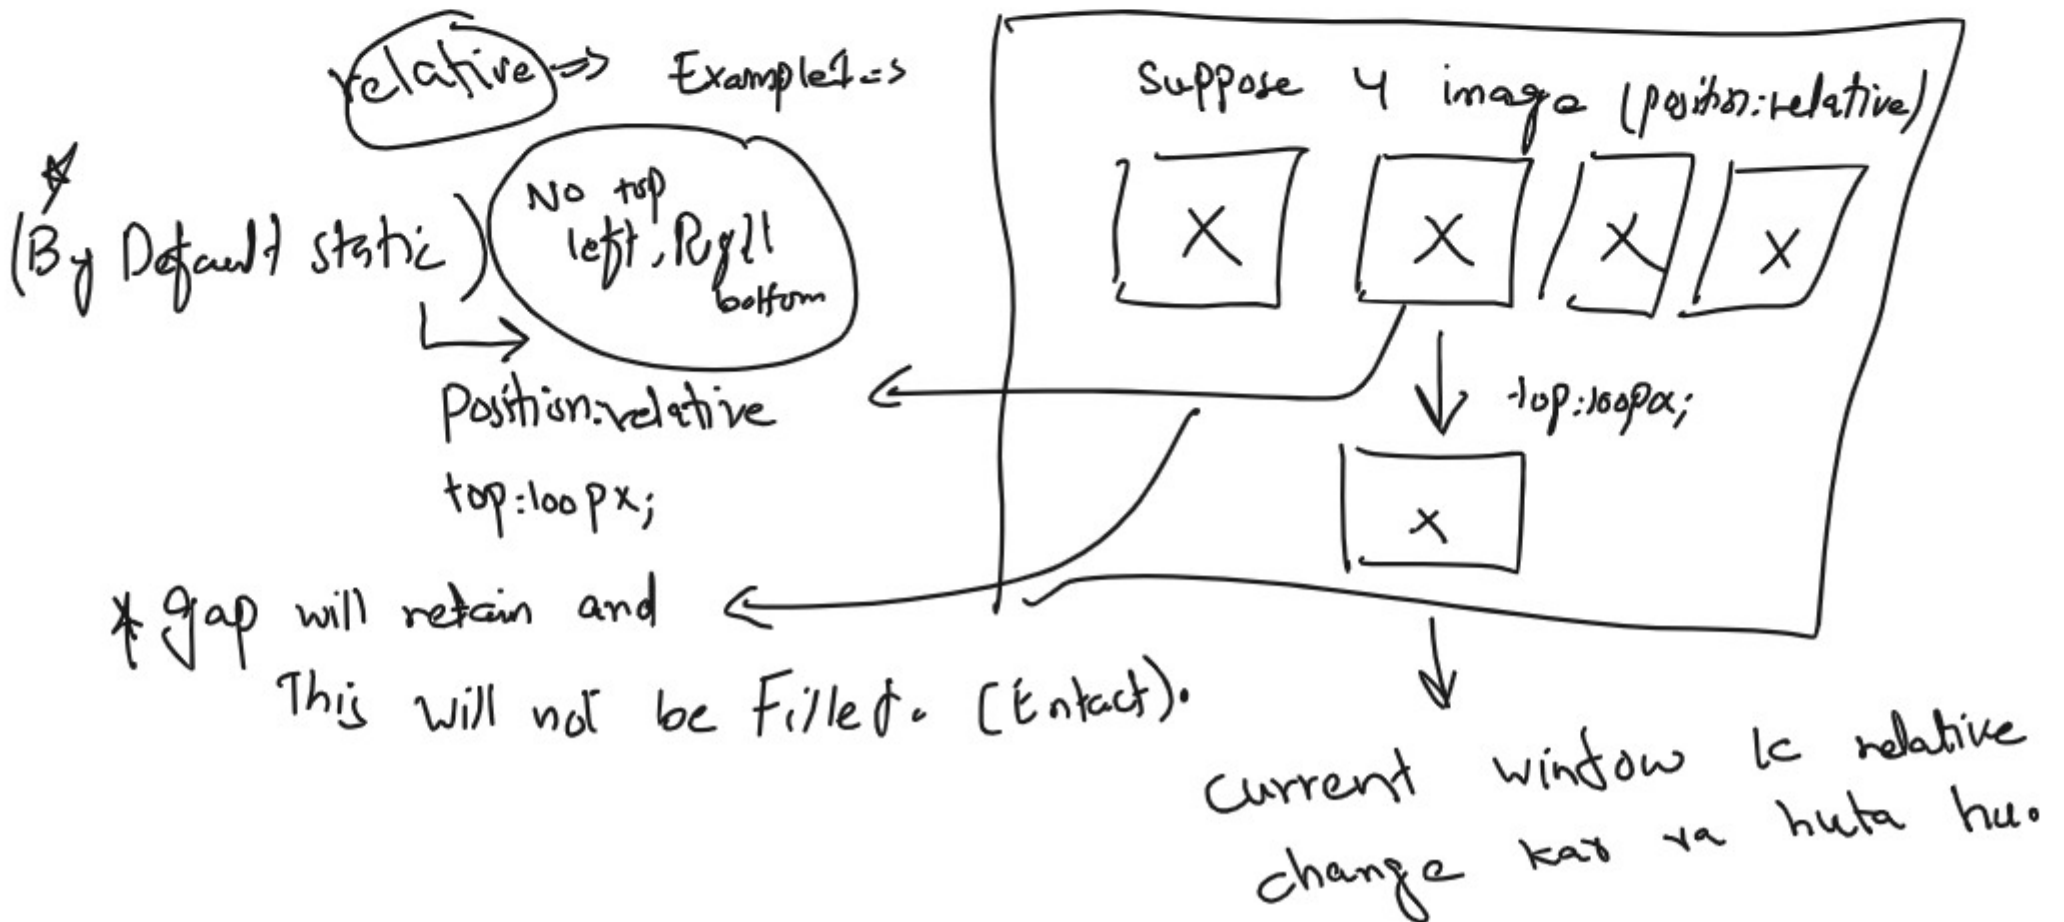 relative => Example1=>
(By Default static)
No top
left, Right
bottom
Position:relative
top:100px;
* gap will retain and
This will not be Filled. (Entact).
Suppose 4 image (position:relative)
X X X X
top:100px;
X
Current window k relative
change kar ra huta hu.